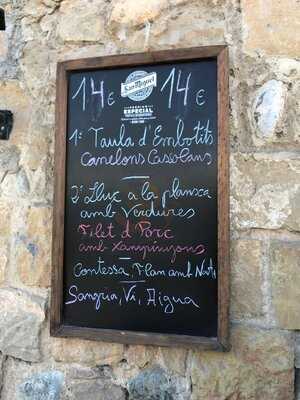 14€ San Miguel 14€
ESPECIAL
1: Taula d'Embotits
Canelons Cassolans
2: Lluç a la planxa
amb Verdures
Filet d Porc
amb Xampinyons
Contessa, Flam amb Nata
Sangria, Vi, Aigua